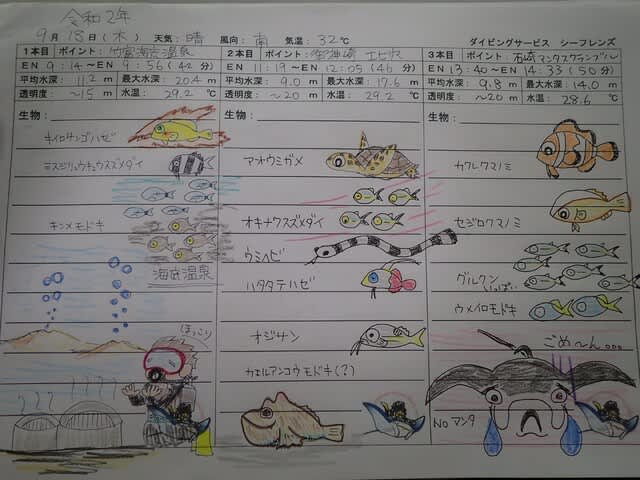 令和2年
9月18日(木) 天気:晴 風向:南 気温:32℃ ダイビングサービス シーフレンズ
1本目 ポイント:竹富海底温泉
EN 9:14~EN 9:56(42分)
平均水深:11.2m 最大水深:20.4m
透明度:~15m 水温:29.2℃
生物:
キイロサンゴハゼ
ミスジリュウキュウスズメダイ
キンメモドキ
海底温泉
ほっこり
2本目 ポイント:御神崎 エビ穴
EN 11:19~EN 12:05(46分)
平均水深:9.0m 最大水深:17.6m
透明度:~20m 水温:29.2℃
生物:
アオウミガメ
オキナワスズメダイ
ウミヘビ
ハタタテハゼ
オジサン
カエルアンコウモドキ(?)
3本目 ポイント:石崎マンタスクランブル
EN 13:40~EN 14:33(50分)
平均水深:9.8m 最大水深:14.0m
透明度:~20m 水温:28.6℃
生物:
カクレクマノミ
セジロクマノミ
グルクン
いっぱい
ウメイロモドキ
ごめ~ん。。。
NO マンタ